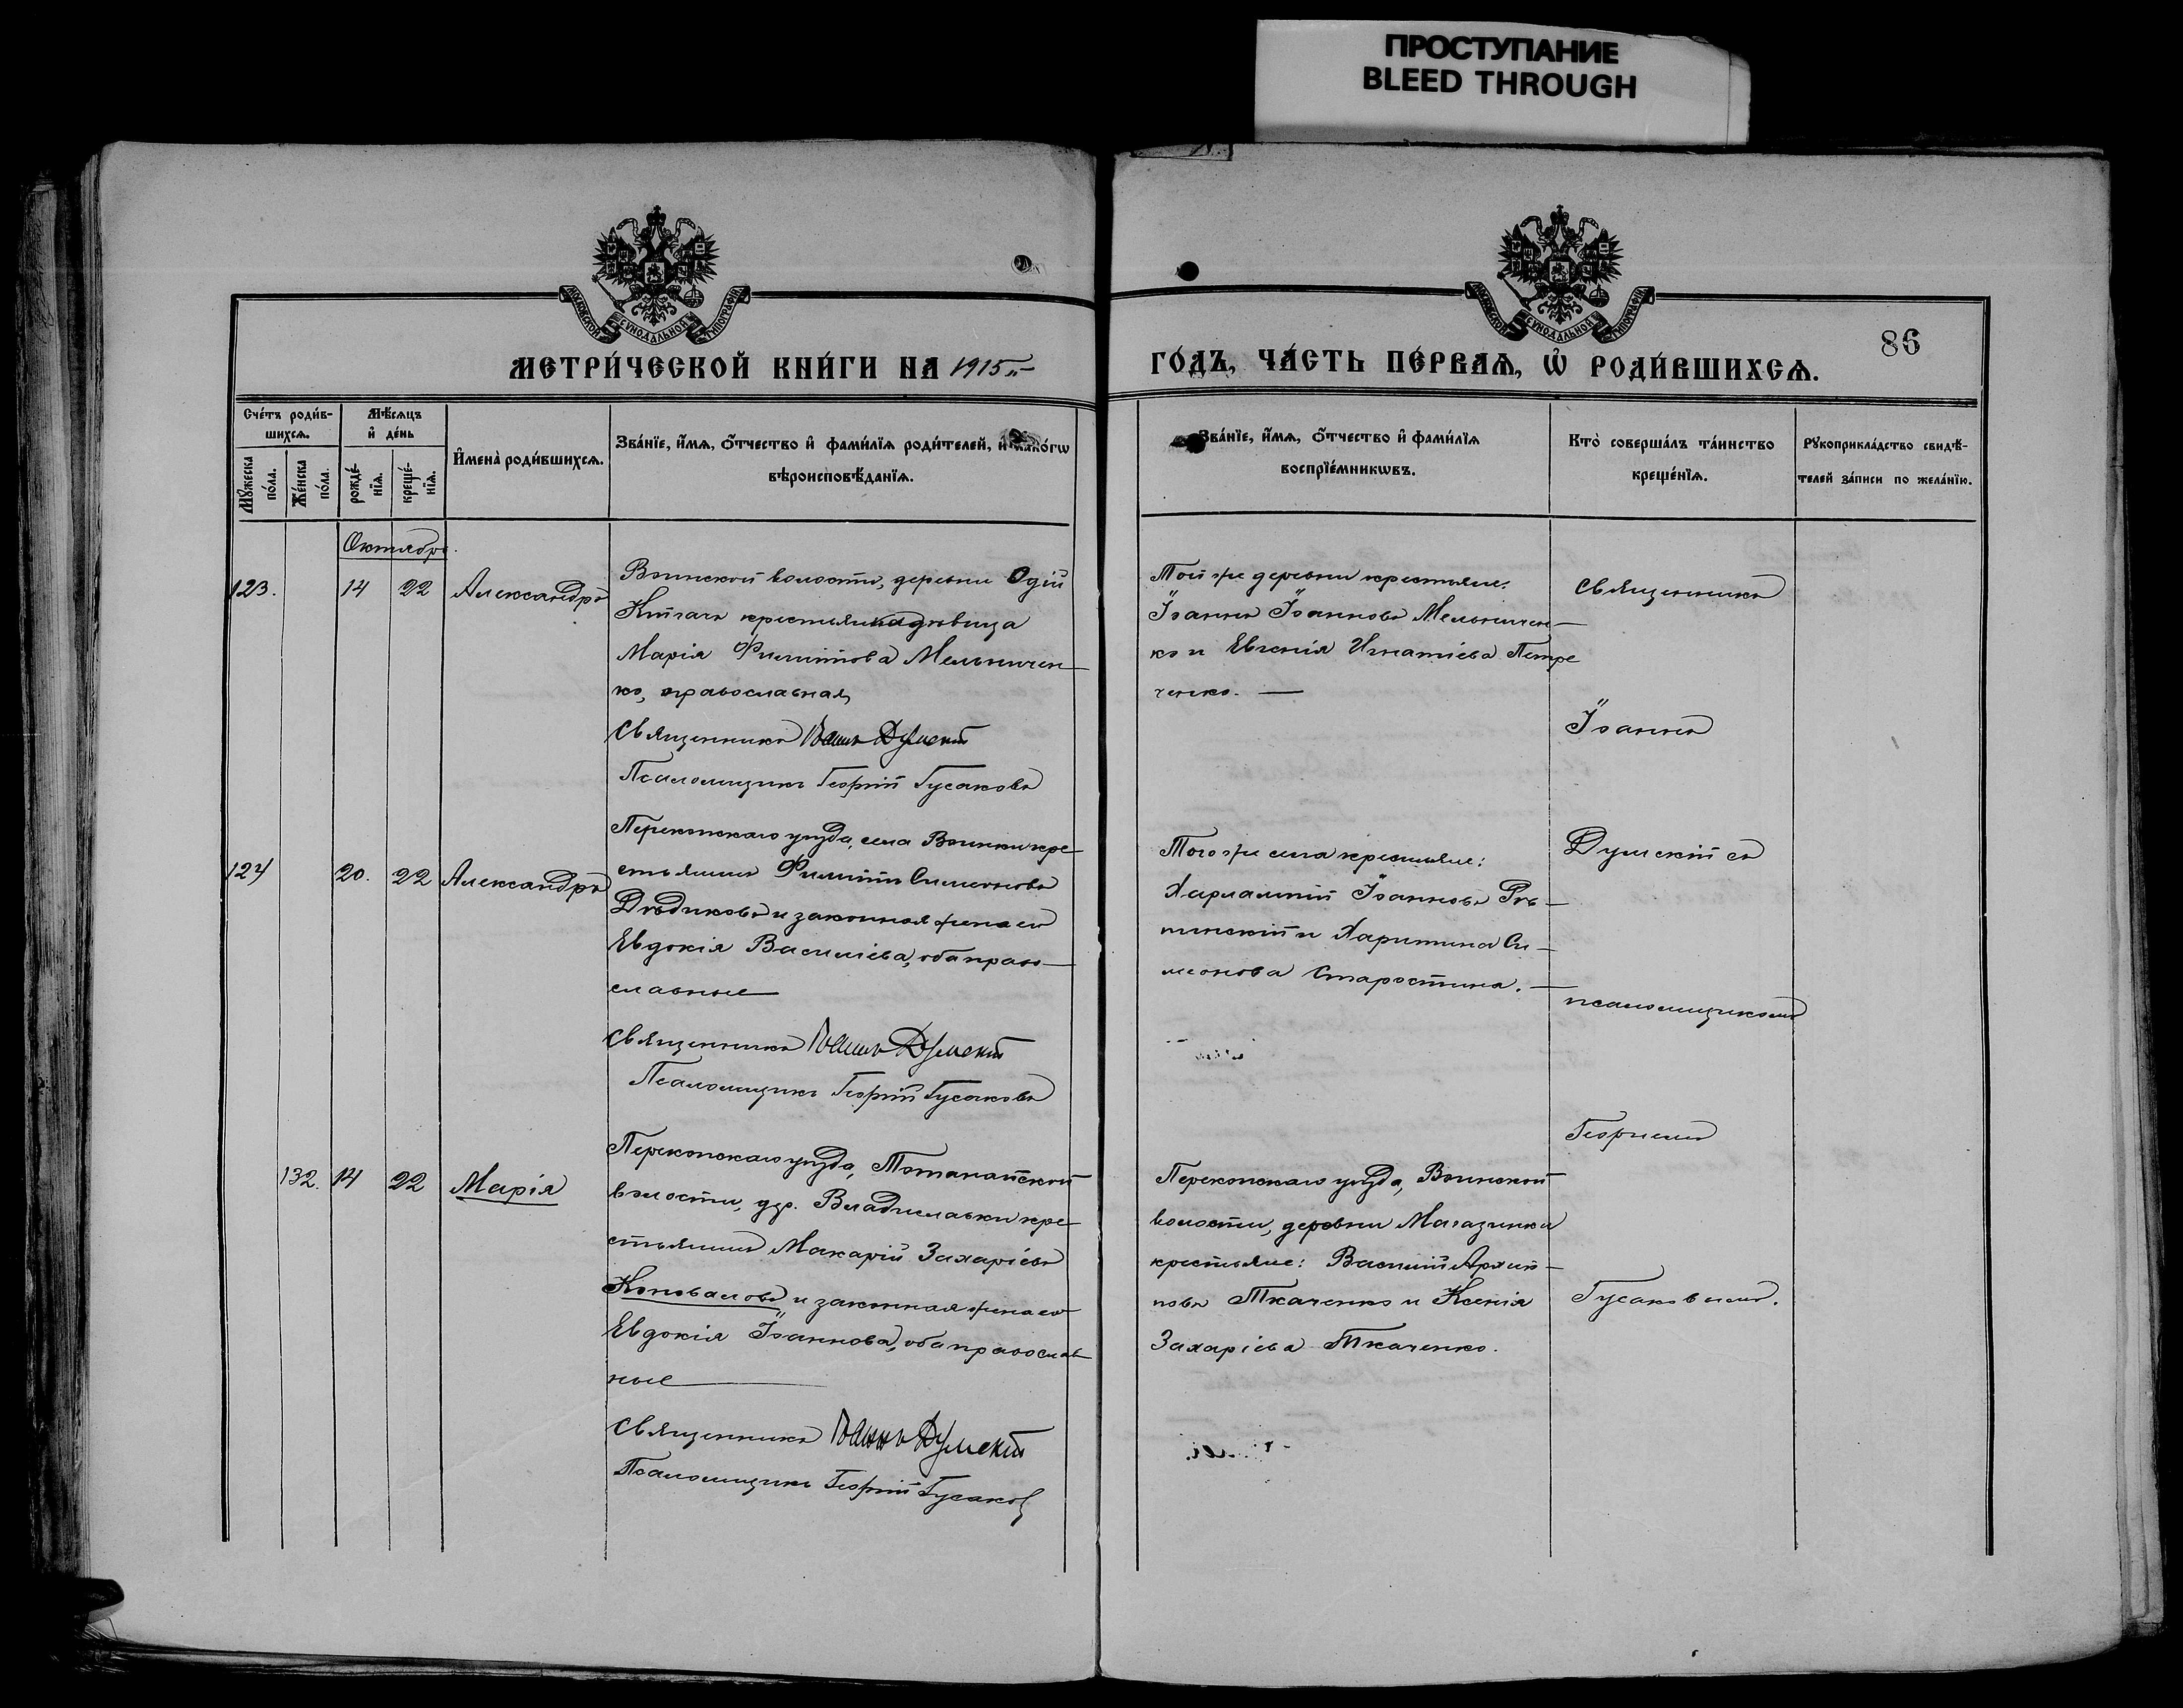 ПРОСТУПАНИЕ
BLEED THROUGH
МОСКОВСКОЙ СѴНОДАЛЬНОЙ ТИПОГРАФІИ
МОСКОВСКОЙ СѴНОДАЛЬНОЙ ТИПОГРАФІИ
86
МЕТРИ́ЧЕСКОЙ КНИ́ГИ НА 1915
ГО́ДЪ, ЧА́СТЬ ПЕ́РВАѦ, Ѡ҆ РОДИ́ВШИХСѦ.
Сче́тъ роди́в-
шихсѧ.
Мꙋ́жеска
по́ла.
Же́нска
по́ла.
Мѣ́сѧцъ
и҆ де́нь
рожде́-
нїѧ.
креще́-
нїѧ.
И҆мена̀ роди́вшихсѧ.
Зва́нїе, и҆́мѧ, ѻ҆́тчество и҆ фами́лїѧ роди́телей, и҆ како́гѡ
вѣроисповѣ́данїѧ.
Зва́нїе, и҆́мѧ, ѻ҆́тчество и҆ фами́лїѧ
воспрїе́мникѡвъ.
Кто̀ соверша́лъ та́инство
креще́нїѧ.
Рꙋкоприкла́дство свидѣ́-
телей за́писи по жела́нїю.
Октябрь.
123. 14 22 Александръ
Воинской волости, деревни
Китачъ крестьянка дѣвица
Марія Филиппова Мельничен-
ко, православная
Священникъ Іоаннъ Думскій
Псаломщикъ Георгій Гусаковъ
Той же деревни крестьяне:
Іоаннъ Іоанновъ Мельничен-
ко и Евгенія Игнатіева Петре
ченко.
124 20. 22 Александръ
Перекопскаго уѣзда, села Воинки кре
стьянинъ Филиппъ Симеоновъ
Дѣдиковъ и законная жена его
Евдокія Василіева, оба право-
славные
Священникъ Іоаннъ Думскій
Псаломщикъ Георгій Гусаковъ
Того же села крестьяне:
Харлампій Іоанновъ Рѣ-
пинскій и Харитина Си-
меонова Старостина.
132. 14 22 Марія
Перекопскаго уѣзда,
волости, дер. Владиславки кре
стьянинъ Макарій Захаріевъ
Коноваловъ, и законная жена его
Евдокія Іоаннова, оба православ
ные
Священникъ Іоаннъ Думскій
Псаломщикъ Георгій Гусаковъ
Перекопскаго уѣзда, Воинской
волости, деревни Магазинки
крестьяне: Василій Архип-
повъ Ткаченко и Ксенія
Захаріева Ткаченко.
Священникъ
Іоаннъ
Думскій съ
псаломщикомъ
Георгіемъ
Гусаковымъ.